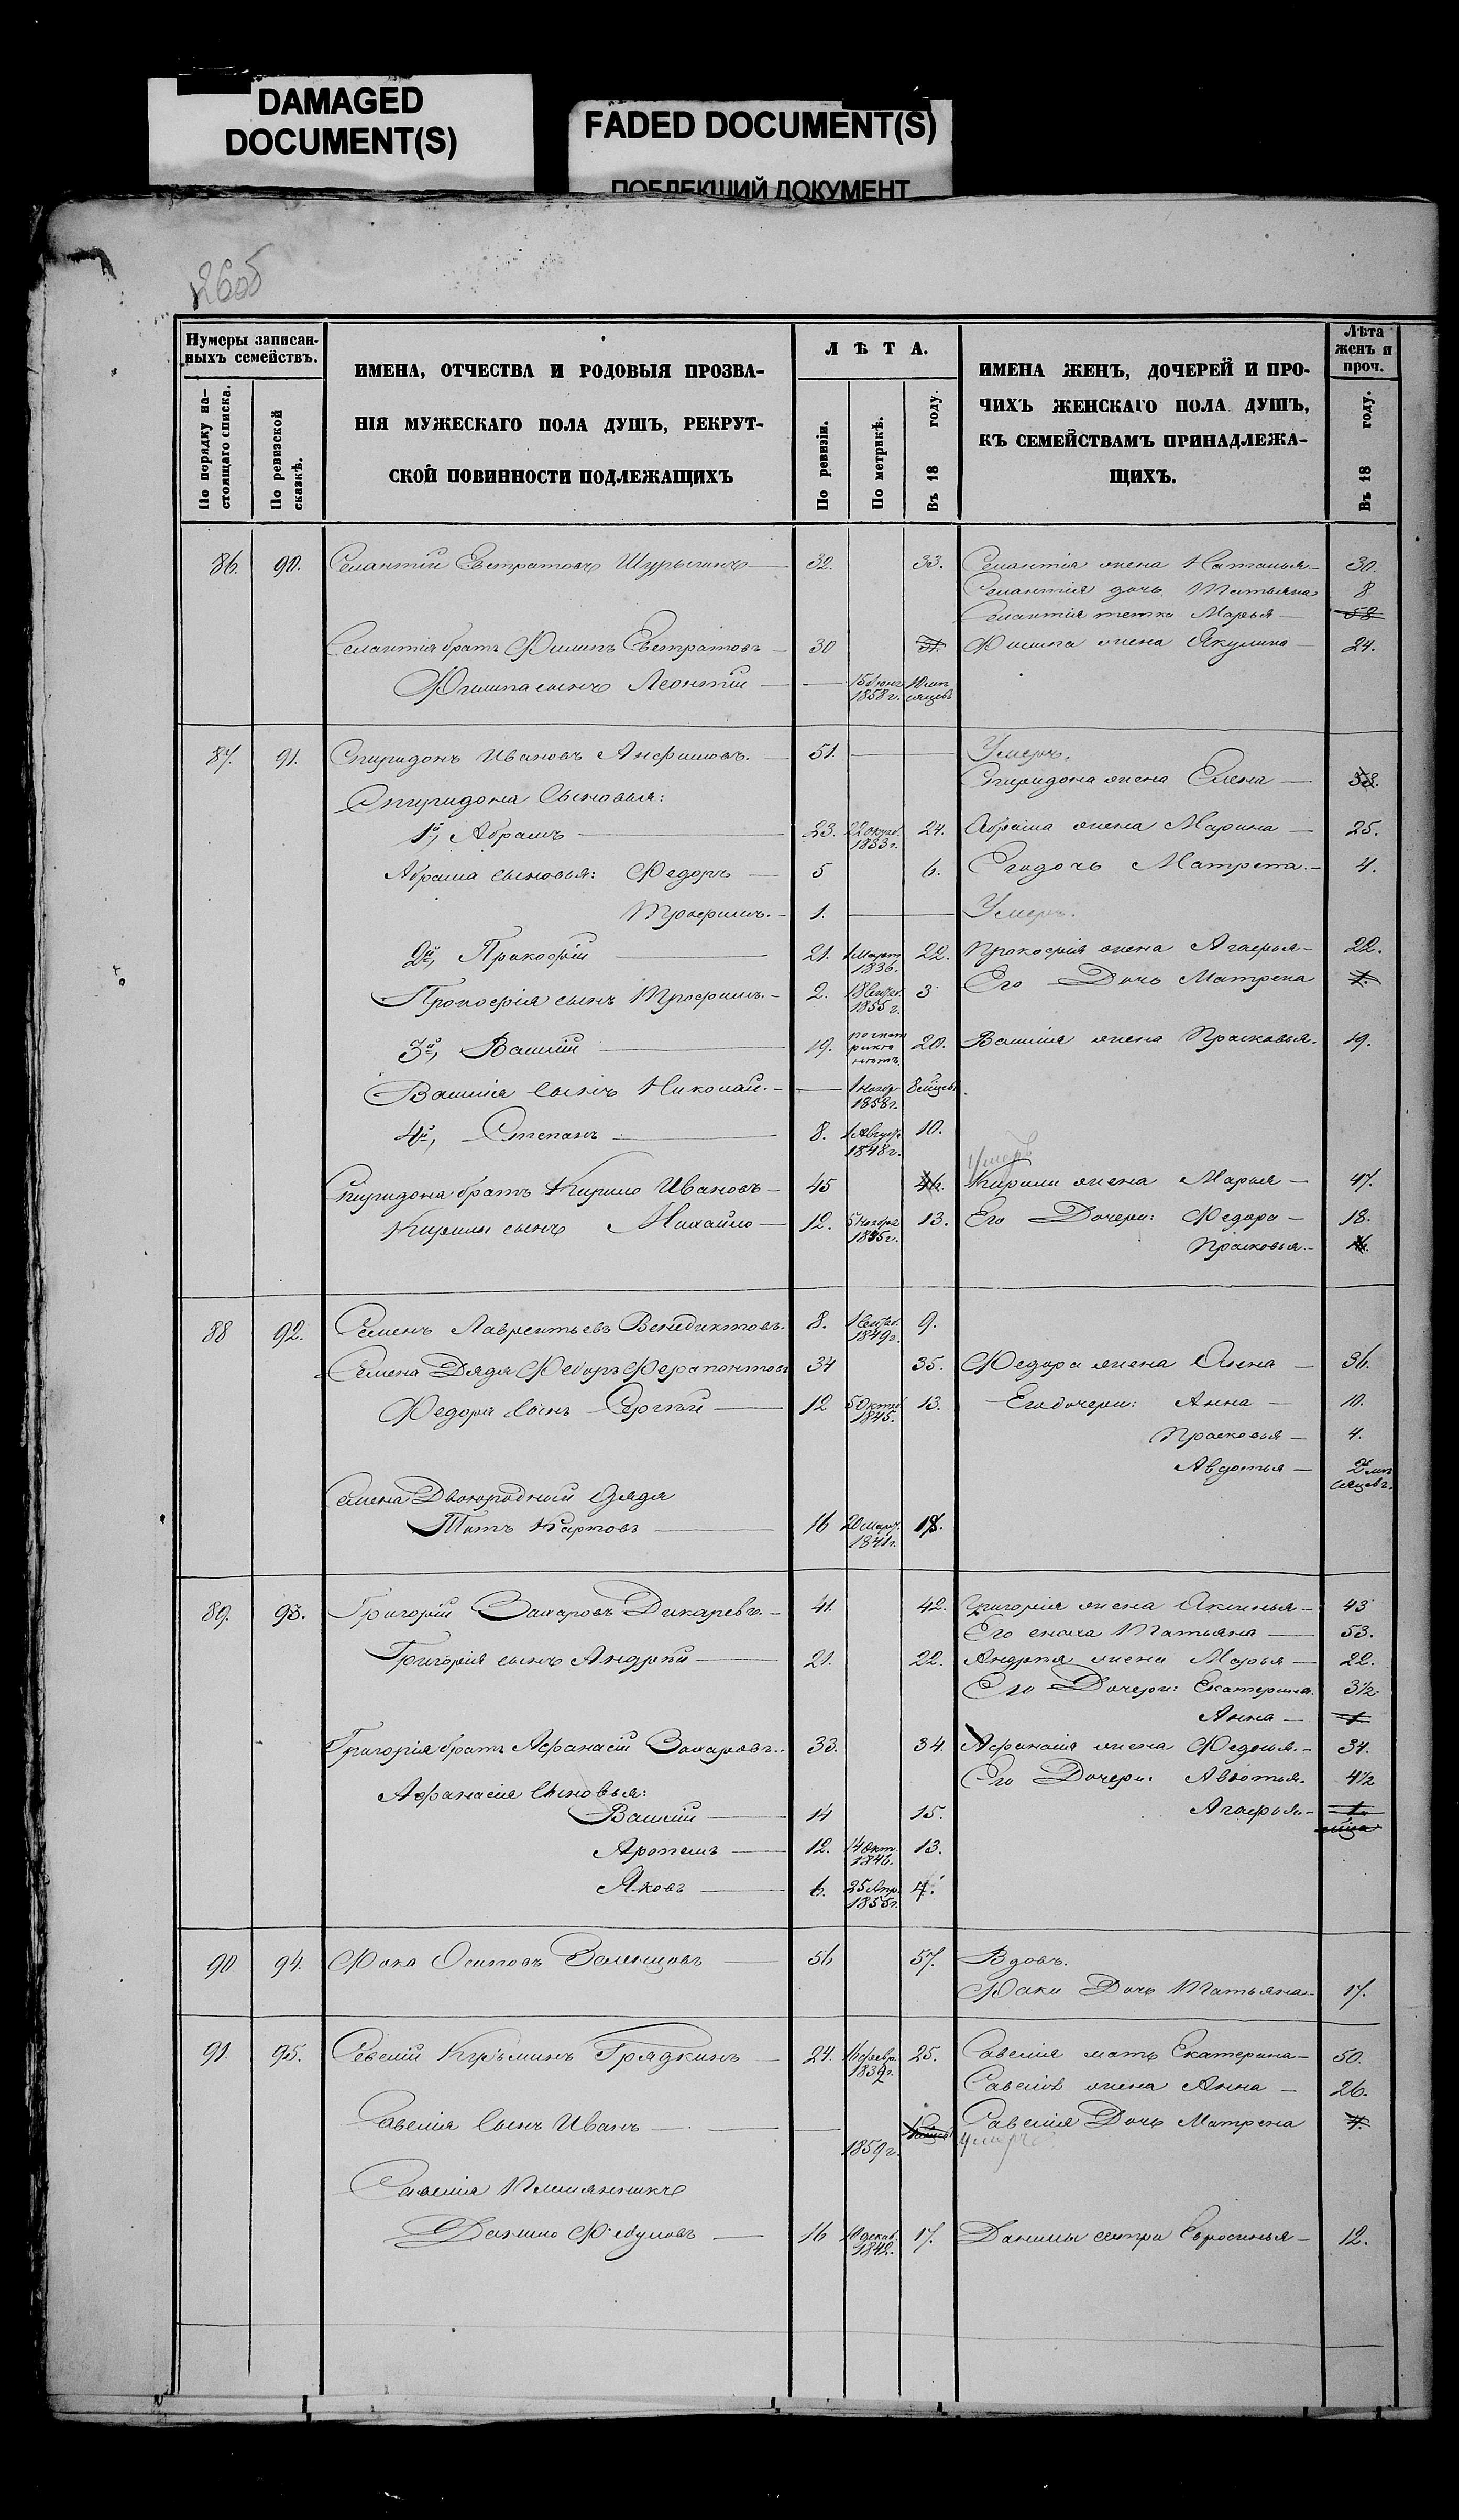 DAMAGED
DOCUMENT(S)
FADED DOCUMENT(S)
ПОБЛЕКШИЙ ДОКУМЕНТ
Нумеры записан-
ныхъ семействъ.
По порядку на-
стоящаго списка.
По ревизской
сказкѣ.
ИМЕНА, ОТЧЕСТВА И РОДОВЫЯ ПРОЗВА-
НІЯ МУЖЕСКАГО ПОЛА ДУШЪ, РЕКРУТ-
СКОЙ ПОВИННОСТИ ПОДЛЕЖАЩИХЪ
ЛѢТА.
По ревизіи.
По метрикѣ.
Въ 18 году.
ИМЕНА ЖЕНЪ, ДОЧЕРЕЙ И ПРО-
ЧИХЪ ЖЕНСКАГО ПОЛА ДУШЪ,
КЪ СЕМЕЙСТВАМЪ ПРИНАДЛЕЖА-
ЩИХЪ.
Лѣта
женъ и
проч.
Въ 18 году.
86. 90. Евстратовъ 32. 33. жена Наталья 30.
дочь Татьяна 8
тетка Марья 58
братъ Филипъ Евстратовъ 30 31. Филипа жена Акулина 24.
Филипа сынъ Леонтій 15 Іюня 1858 г. 10 мѣсяцевъ
87. 91. Спиридонъ Ивановъ Анфимовъ. 51. Умеръ.
Спиридона жена Елена 53.
Спиридона Сыновья:
1й, Абрамъ 23. 1833 г. 24. Абрама жена Марина 25.
Абрама сыновья: Федоръ 5 6. Его дочь Матрена 4.
Трофимъ. 1. Умеръ.
2й, Прокофій 21. 1 Март 1836. 22. Прокофія жена Агафья 22.
Прокофія сынъ Трофимъ. 2. 18 Сентяб. 1855 г. 3 Его Дочь Матрена 1.
3й, Василій 19. 20. Василія жена Прасковья. 19.
Василія Сынъ Николай. 1 Ноябр 1858 г. 8 мѣсцевъ
4й, Степанъ 8. 1 Август 1848 г. 10.
Умеръ
Спиридона братъ Кирило Ивановъ 45 46. Кирилы жена Марья 47.
Кирилы сынъ Михайло 12. 5 Ноября 13. Его Дочери: Федора 18.
Прасковья. 16.
88 92. Семенъ Лаврентьевъ Венедиктовъ. 8. 1 Сентяб. 1849 г. 9.
Семена Дядя Федоръ Ферапонтовъ 34 35. Федора жена Анна 36.
Федора Сынъ Сергѣй 12 5 Октяб 1845. 13. Его дочери: Анна 10.
Прасковья 4.
Авдотья 2 мѣсяцевъ.
Семена Двоюродный дядя
Титъ Карповъ 16 20 Март. 1841 г. 18.
89. 93. Григорій Захаровъ Дикаревъ. 41. 42. Григорія жена Аксинья 43
Его сноха Татьяна 53.
Григорія сынъ Андрѣй 21. 22. Андрѣя жена Марья 22.
Его Дочери: Екатерина. 3½.
Анна 1
Григорія братъ Афанасій Захаровъ. 33. 34. Афанасія жена Федосья. 34.
Его Дочери: Авдотья. 4½
Афанасія Сыновья:
Василій 14 15. Агафья 1
Артемъ 12. 14 Окт. 1846. 13.
Яковъ 6. 25 Апр. 1855 г. 4.
90 94. Фока Осиповъ 56 57. Вдовъ.
Фоки Дочь Татьяна 17.
91. 95. Савелій Кузьминъ Грядкинъ 24. 16 февр. 25. Савелія мать Екатерина 50.
Савелія жена Анна 26.
Савелія Сынъ Иванъ 1859 г. Савелія Дочь Матрена 4.
умеръ
Савелія Племянникъ
Данило Федуловъ 16 10 декаб. 1842. 17. Данилы сестра Евросинья 12.